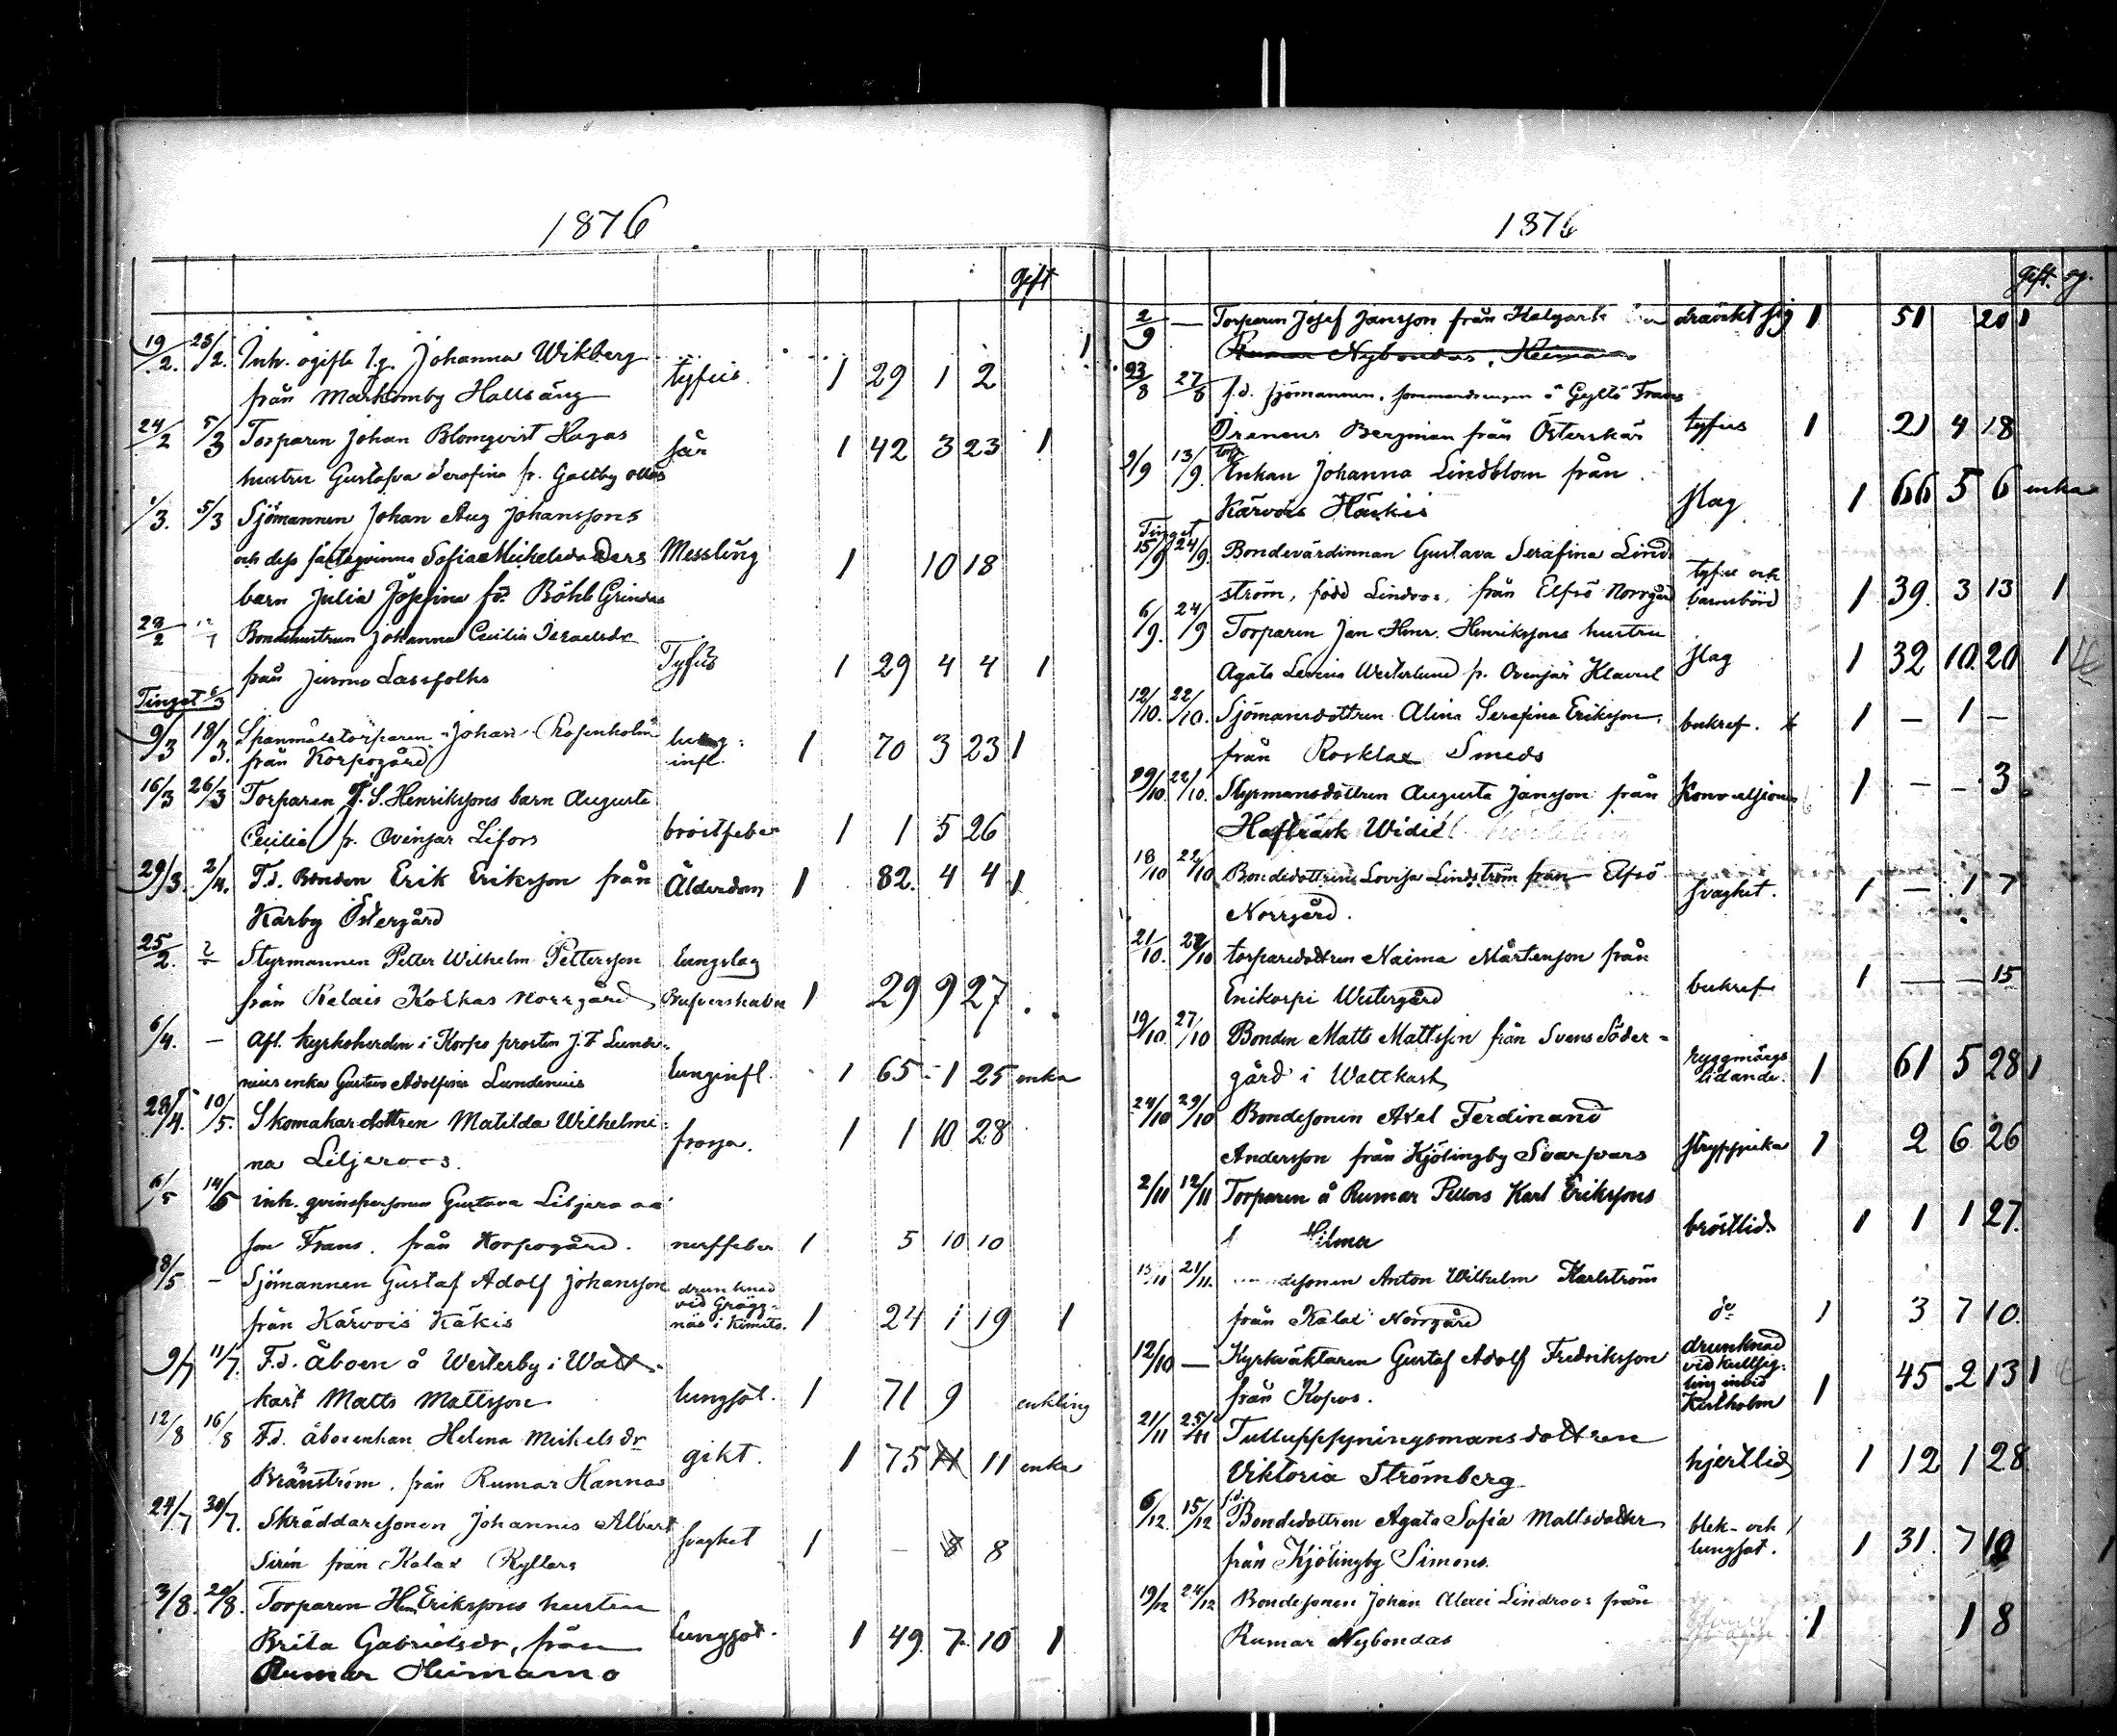 1876
gift
19/2. 25/2. Inh. ogifta l.g. Johanna Wikberg
från Markomby Hallsäng tyfus. 1 29 1 2 1
24/2 5/3 Torparen Johan Blomqvist Hagas
hustru Gustafva Serafina fr. Galtby ollas sår 1 42 3 23 1
1/3. 5/3 Sjömannen Johan Aug Johanssons
och dess fästeqvinna Sofia Mickelsdotters Messling 1 10 18
barn Julia Josefina fr. Böhle Grindas
28/2 Bondehustrun Johanna Cecilia Israelsdr
från Jurmo Lassfolks Tyfus 1 29 4 4 1
Tinget 6/3
9/3 18/3. Spanmålstorparen Johan Rosenholm
från Korpogård lung- infl. 1 70 3 23 1
16/3 26/3 Torparen J. S. Henrikssons barn Augusta
Cecilia fr. Ovensjar Lifors bröstfeber 1 1 5 26
29/3. 2/4. F.d. Bonden Erik Eriksson från
Karby Östergård Ålderdom 1 82. 4 4 1
25/2. ? Styrmannen Petter Wilhelm Pettersson lungslag
från Retais Kolkas Norrgård 1 29 9 27
6/4. — Afl. kyrkoherden i Korpo prosten J. F Lunde-
nius enka Gustava Adolfina Lundenius lunginfl. 1 65 - 1 25 enka
28/4. 10/5. Skomakardottren Matilda Wilhelmi-
na Liljeroos. frossa. 1 1 10 28
6/5 14/5 inh. qvinspersonen Gustava Liljeroos
son Frans. från Korpogård. nerffeber 1 5 10 10
8/5 — Sjömannen Gustaf Adolf Johansson drunknad
från Kärvois Käkis vid Grägg-
näs i Kimito. 1 24 1 19 1
9/7 11/7. F.d. Åboen å Westerby i Watt-
kast Matts Mattsson lungsot. 1 71 9 enkling
12/8 16/8 F.d. åboenkan Helena Mickelsdr
Bränström, från Rumar Hannas gikt. 1 75 11 enka
24/7 30/7. Skräddaresonen Johannes Albert
Sirén från Kalax Ryttars svaghet 1 — 8 8
3/8. 20/8. Torparen Hen Erikssons hustru
Brita Gabrielsdr, från lungsot. 1 49 7 10 1
Rumar Heimamo
1876
gift. og.
2/9 — Torparen Josef Jansson från dränkt sig 1 51 20 1
Rumar Nybondas, Heimamo
23/8 27/8 f.d. sjömannen, sommardrengen å Gyltö Frans
Ireneus Bergman från Österskär tyfus 1 21 4 18
9/9 13/9. Torp Enkan Johanna Lindblom från
Kärvois Häikis slag 1 66 5 6 enka
Tinget
15/9 24/9. Bondevärdinnan Gustava Serafina Lind-
ström, född Lindroos, från Elfsö Norrgård tyfus och barnsbörd 1 39. 3 13 1
6/9. 24/9 Torparen Jan Henr. Henrikssons hustru
Agata Westerlund fr. Ovensjar Klavus slag 1 32 10. 20 1
12/10. 22/10. Sjömansdottren Alina Serafina Eriksson,
från Rosklax Smeds bukref. 1 — 1 —
22/10. Styrmansdottren Augusta Jansson från Konvulsioner 1 — — 3
Hafträsk Widis
18/10 22/10 Bondedottren Lovisa Lindström från Elfsö
Norrgård. svaghet. 1 — 1 7
21/10. 27/10 torparedottren Naima Mårtenson från
Enikorpi Westergård bukref 1 — — 15
19/10 27/10 Bonden Matts Mattsson från Svens Söder-
gård i Wattkast ryggmärgs lidande. 1 61 5 28 1
24/10 29/10 Bondesonen Axel Ferdinand
Andersson från Kjölingby Svarfvars strypsjuka 1 2 6 26
2/11 12/11 Torparen å Rumar Pellas Karl Erikssons
Hilma bröstlid. 1 1 1 27.
21/11. Anton Wilhelm Karlström
från Kalax Norrgård do 1 3 7 10.
12/10 — Kyrkväktaren Gustaf Adolf Fredriksson drunknad
från Kopos. vid kullseg-
ling invid
Kerlholm 1 45. 2 13 1
21/11 25/11 Tulluppsyningsmansdottren
Viktoria Strömberg hjertlid. 1 12 1 28
6/12. 15/12 f.d. Bondedottren Agata Sofia Mattsdotter
från Kjölingby Simons. blek- och lungsot. 1 31. 7 10 1
19/12 24/12 Bondesonen Johan Alexei Lindroos från
Rumar Nybondas 1 1 8